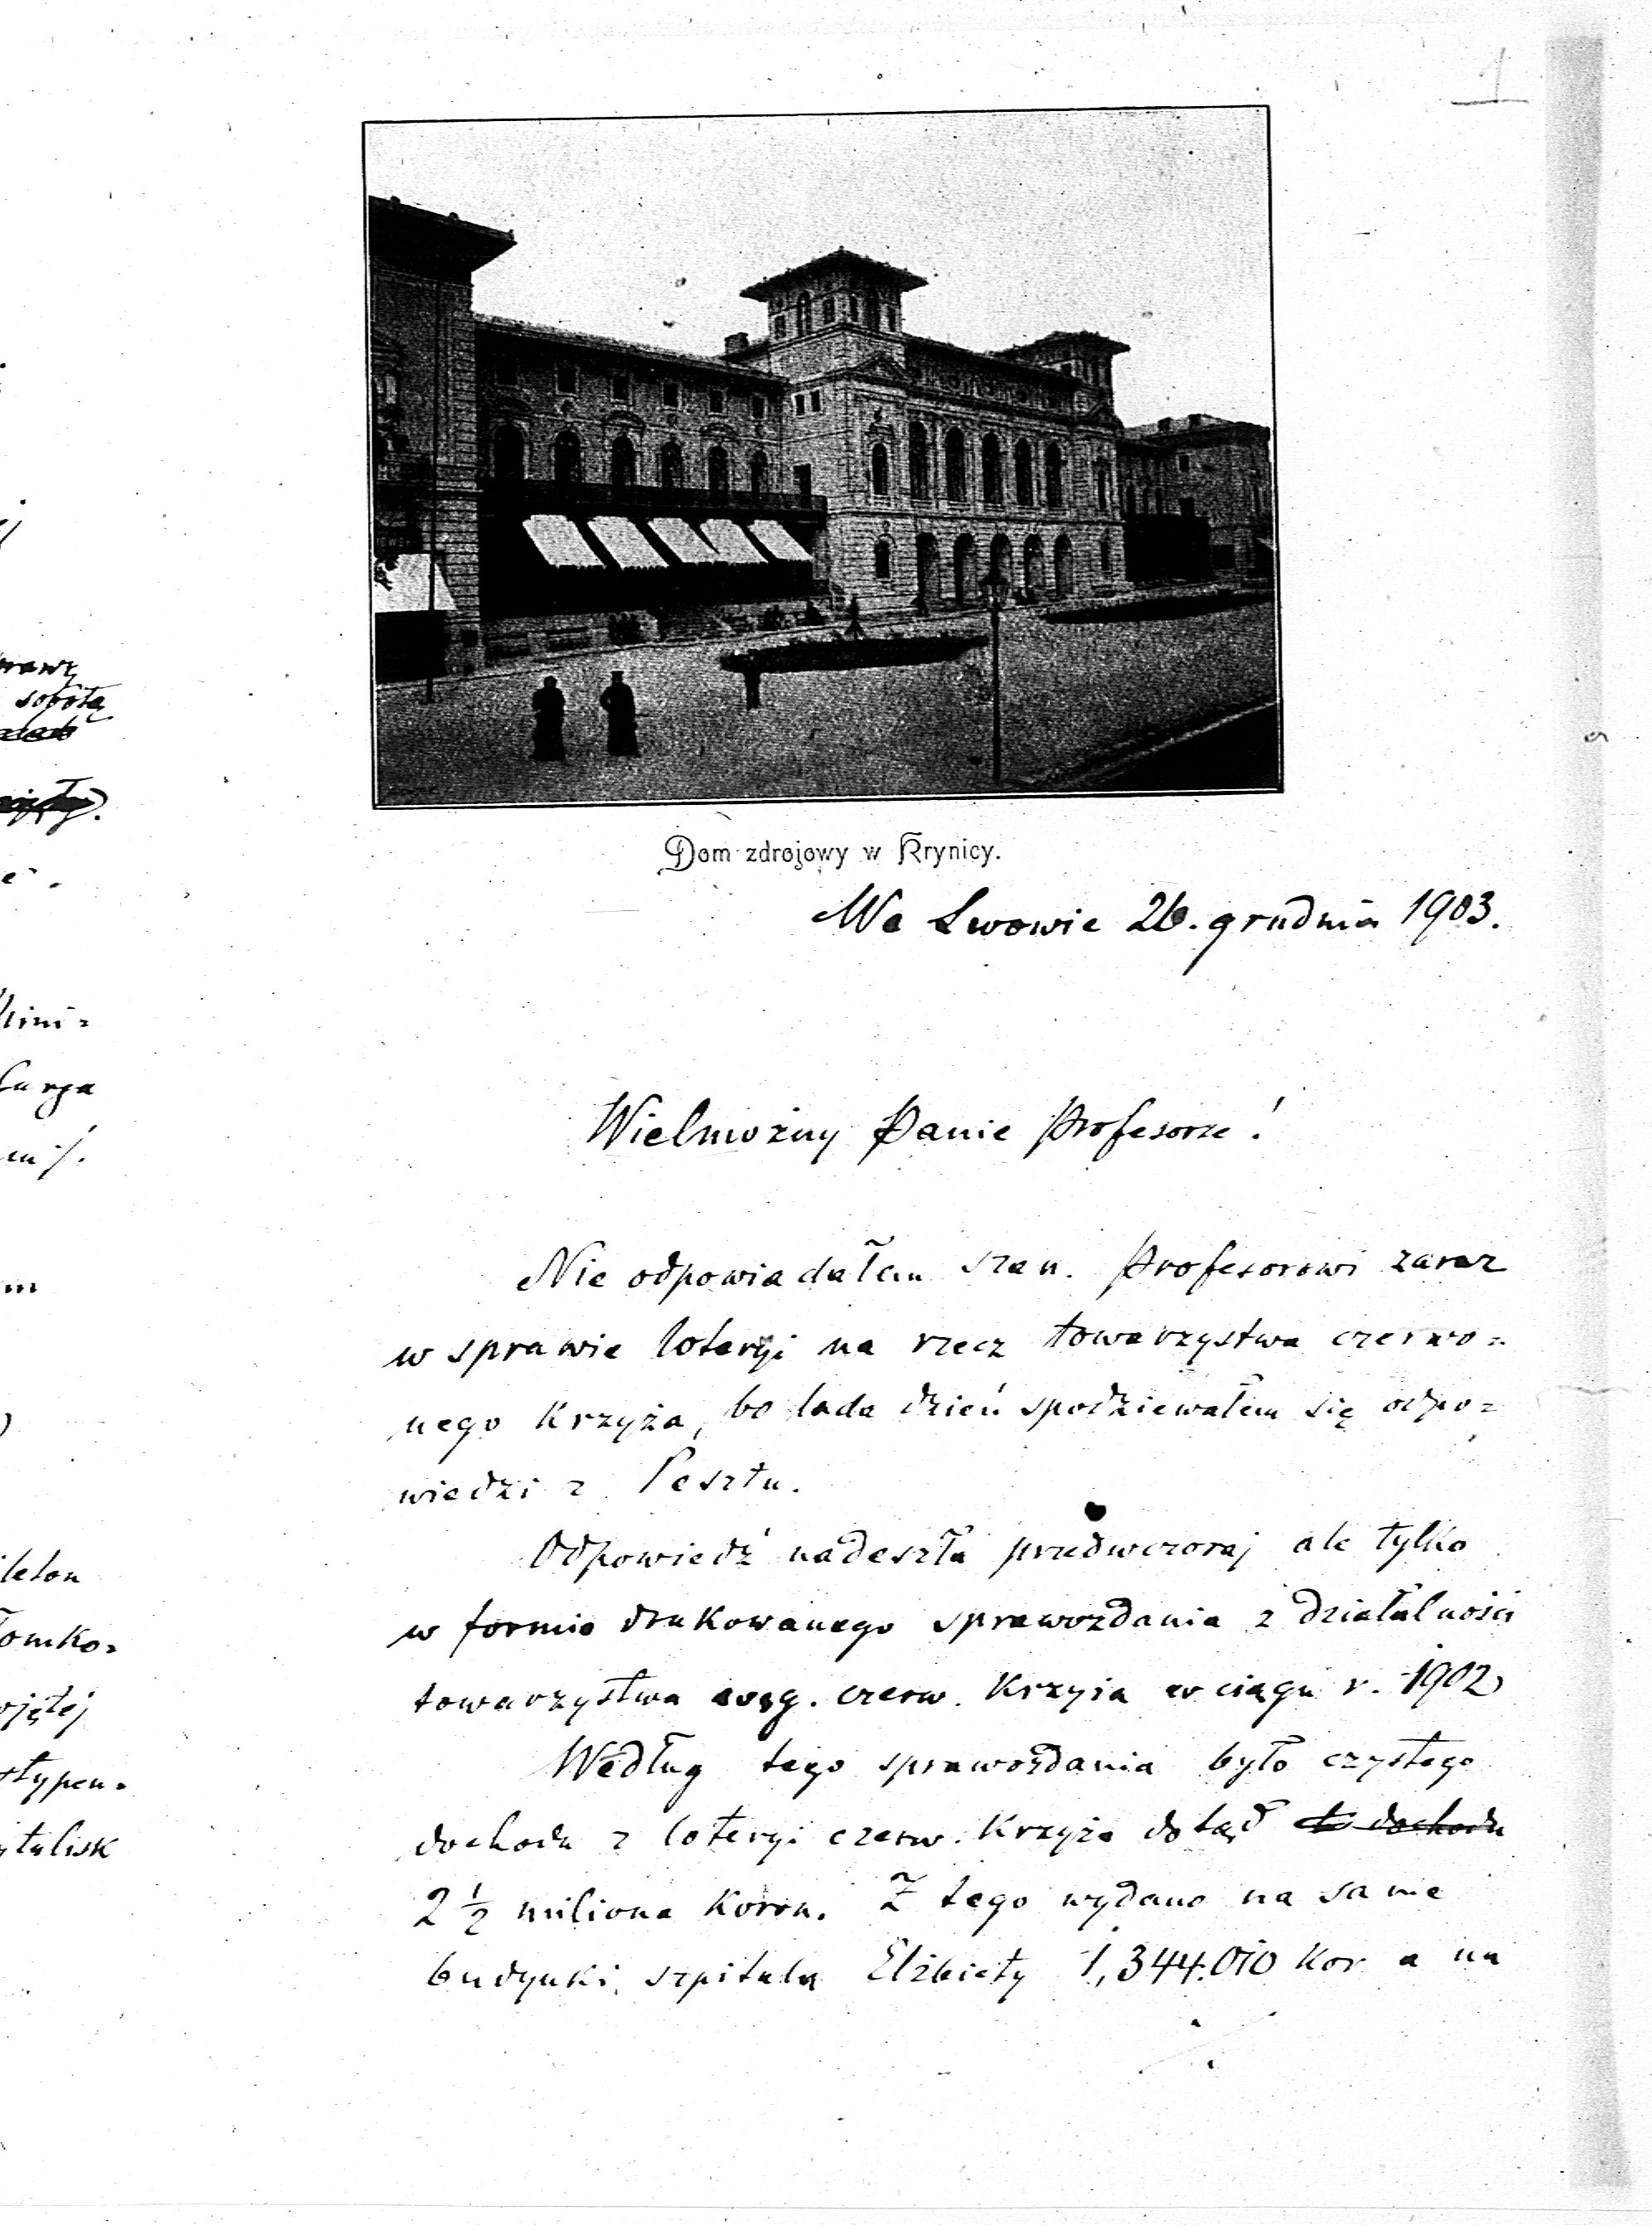 1
Dom zdrojowy w Krynicy.
We Lwowie 26. grudnia 1903.
Wielmożny Panie Profesorze!
Nie odpowiadałem szan. Profesorowi zaraz
w sprawie loteryi na rzecz towarzystwa czerwo=
nego Krzyża, bo lada dzień spodziewałem się odpo=
wiedzi z Pesztu.
Odpowiedź nadeszła przedwczoraj ale tylko
w formie drukowanego sprawozdania z działalności
towarzystwa węg. czerw. Krzyża w ciągu r. 1902
Według tego sprawozdania było czystego
dochodu z loteryi czerw. Krzyża dotąd
2 1/2 miliona Koron. Z tego wydano na same
budynki szpitala Elżbiety 1,344.010 Kor a na
sobotą